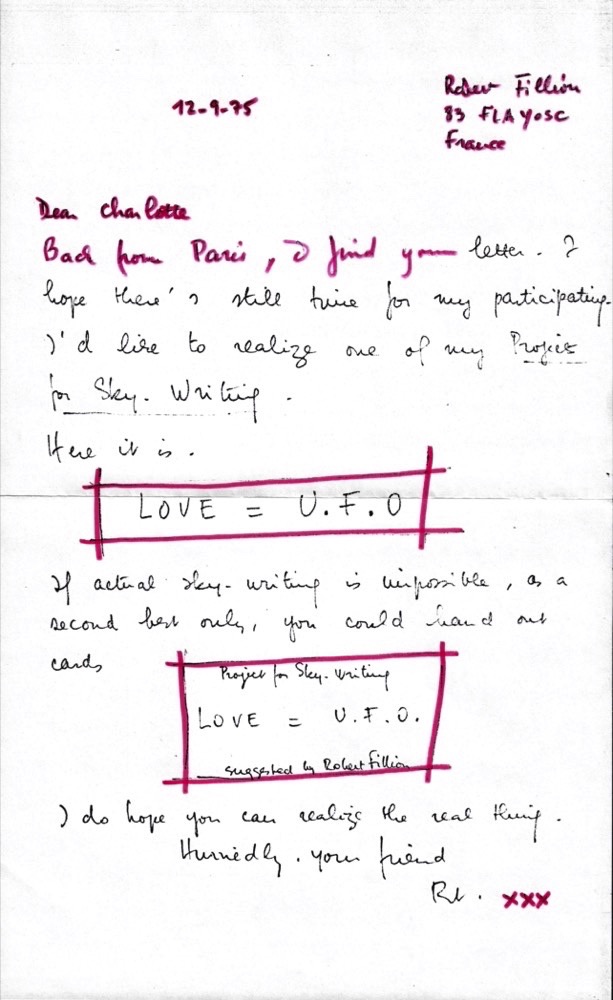 Robert Fillion
12-9-75
83 FLAYOSC
France
Dear Charlotte
Back from Paris, I find your letter. I
hope there's still time for my participating.
I'd like to realize one of my Project
for Sky-Writing.
Here it is.
LOVE = U.F.O
If actual sky-writing is impossible, as a
second best only, you could hand out
cards
Project for Sky-Writing
LOVE = U.F.O.
suggested by Robert Fillion
I do hope you can realize the real thing.
Hurriedly. your friend
Rt. xxx